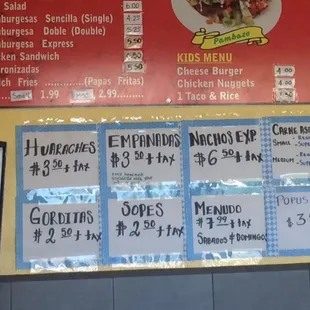 Salad 6.00
burgesa Sencilla (Single) 4.25
burgesas Doble (Double) 5.25
burgesas Express 9.50
cken Sandwich 6.50
ronizadas 5.50
ch Fries (Papas Fritas)
Small 1.99 Large 2.99
Pambazo
KIDS MENU
Cheese Burger 4.00
Chicken Nuggets 4.00
1 Taco & Rice
HUARACHES
$3.50 + tax
EMPANADAS
$3.50 + tax
NACHOS EXP
$6.50 + tax
CARNE ASA
SMALL -
MEDIUM -
GORDITAS
$2.50 + tax
SOPES
$2.50 + tax
MENUDO
$7.99 + tax
SABADOS & DOMINGO
PUPUS
$3